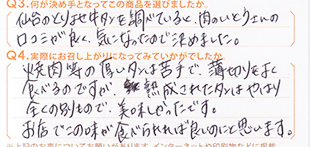 Q3.何が決め手となってこの商品を選びましたか。
仙台のとりよせ牛タンを調べていると、肉のいとうさんの
口コミが良く、気になったので決めました。
Q4.実際にお召し上がりになってみていかがでしたか。
焼肉等の厚いタンは苦手で、薄切りをよく
食べるのですが、熟成されたタンはやはり
全くの別もので、美味しかったです。
お店でこの味が食べられれば良いのにと思います。